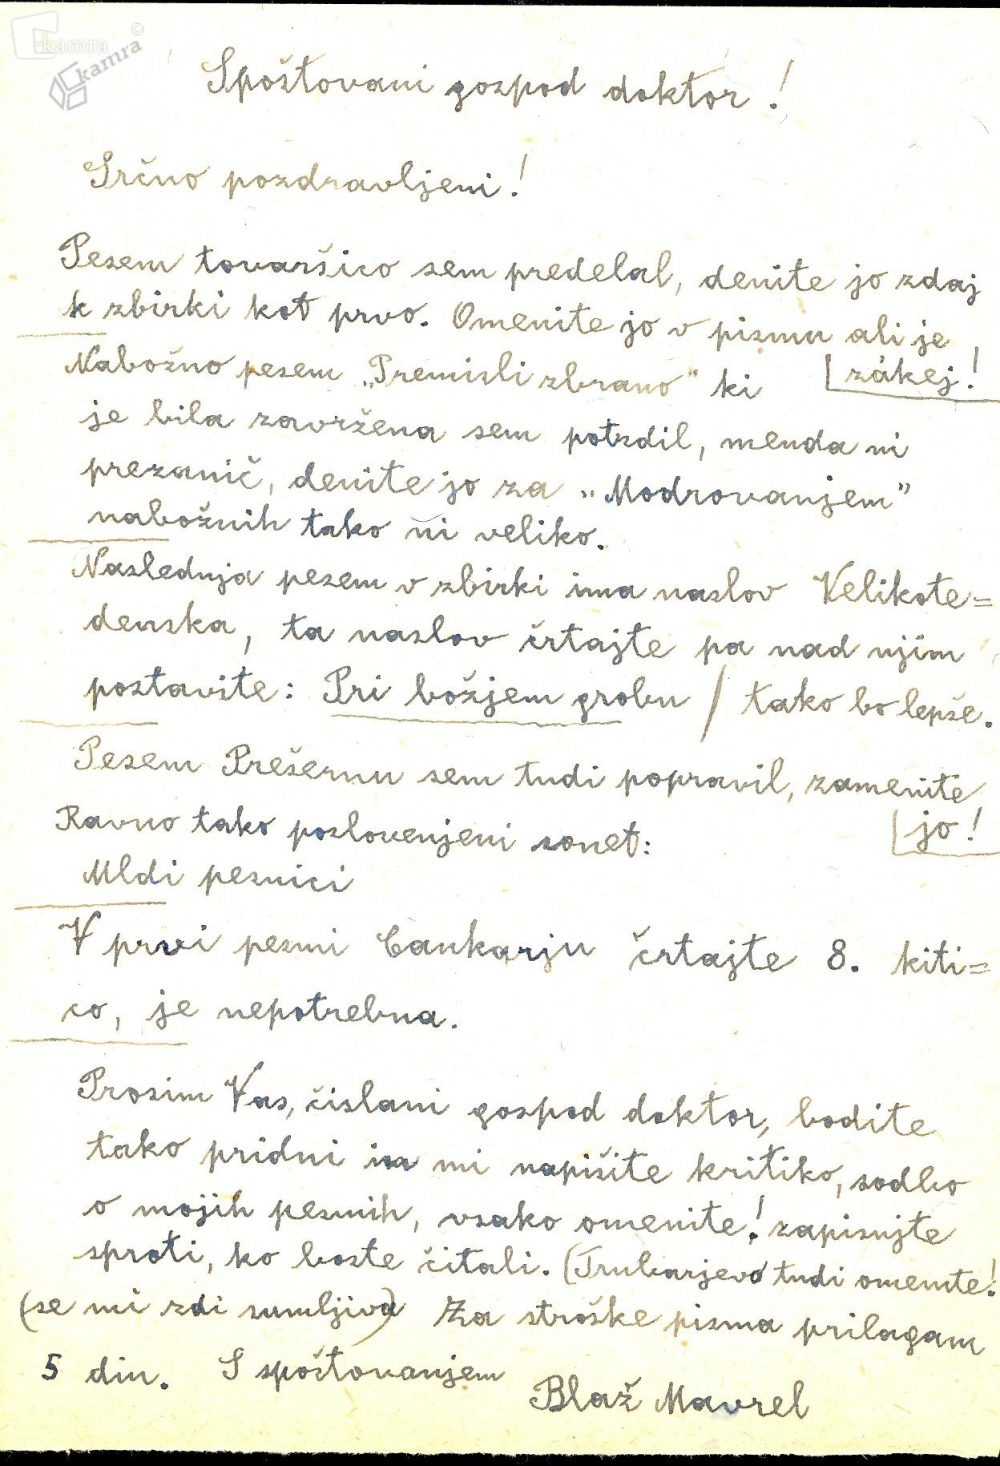 kamra
kamra
Spoštovani gospod doktor!
Srčno pozdravljeni!
Pesem tovaršico sem predelal, denite jo zdaj
k zbirki kot prvo. Omenite jo v pismu ali je
zákej!
Nabožno pesem „Premisli zbrano" ki
je bila zavržena sem potrdil, menda ni
prezanič, denite jo za „Modrovanjem"
nabožnih tako ni veliko.
Naslednja pesem v zbirki ima naslov Velikote=
denska, ta naslov črtajte pa nad njim
postavite: Pri božjem grobu / tako bo lepše.
Pesem Prešernu sem tudi popravil, zamenite
jo!
Ravno tako poslovenjeni sonet:
Mldi pesnici
V prvi pesmi Cankarju črtajte 8. kiti=
co, je nepotrebna.
Prosim Vas, čislani gospod doktor, bodite
tako pridni in mi napišite kritiko, sodbo
o mojih pesmih, vsako omenite! zapisujte
sproti, ko boste čitali. (Trubarjevo tudi omenite!
(se mi zdi sumljiva) Za stroške pisma prilagam
5 din. S spoštovanjem
Blaž Mavrel